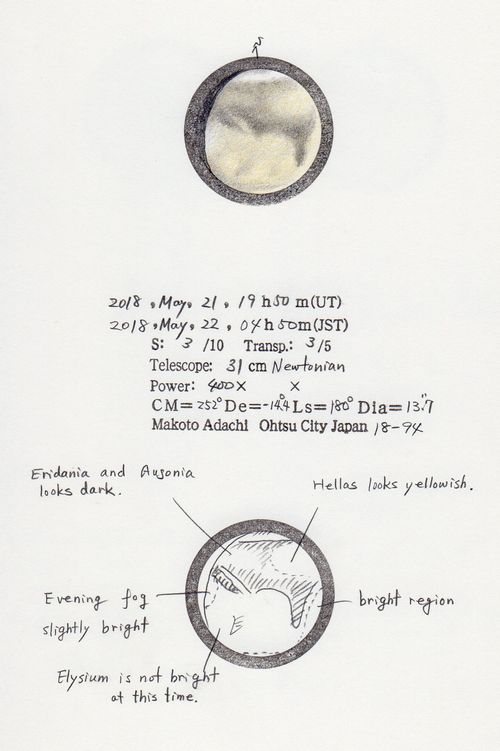 S
2018, May, 21, 19 h 50 m (UT)
2018, May, 22, 04 h 50 m (JST)
S: 3 /10 Transp.: 3 /5
Telescope: 31 cm Newtonian
Power: 400× ×
CM= 252° De= -14.4° Ls= 180° Dia= 13."7
Makoto Adachi Ohtsu City Japan 18-94
Eridania and Ausonia
looks dark.
Hellas looks yellowish.
Evening fog
slightly bright
bright region
Elysium is not bright
at this time.